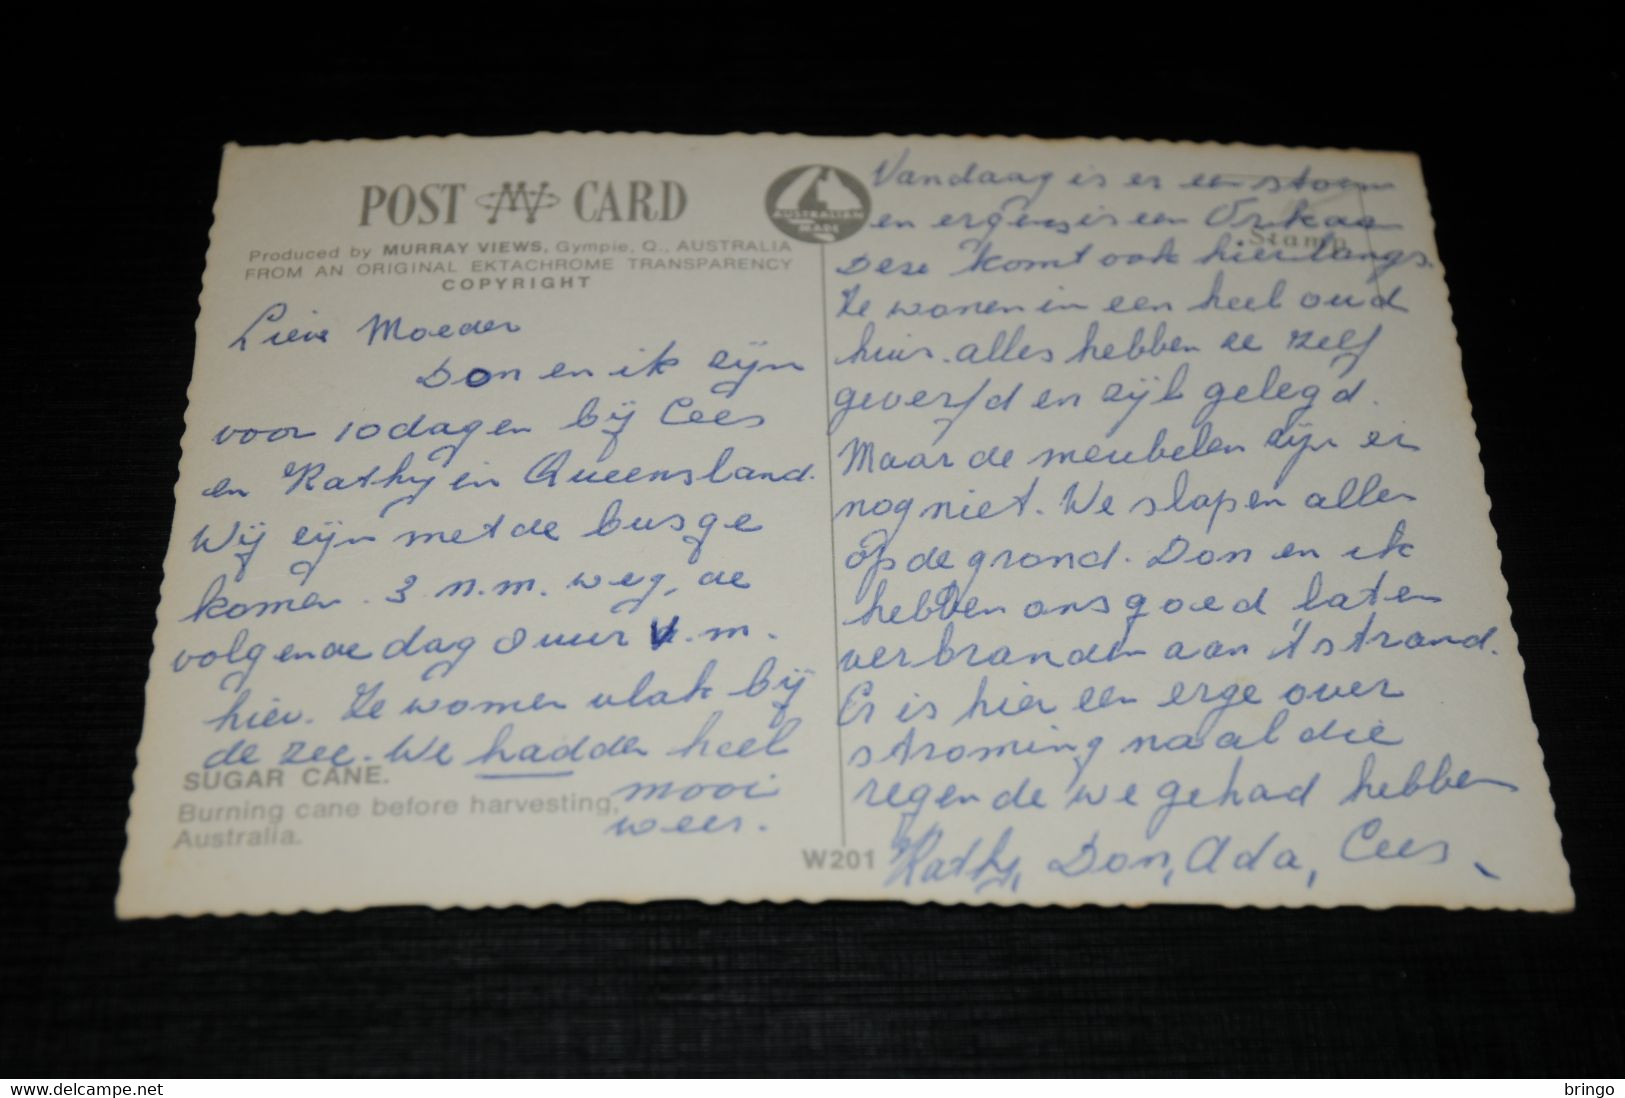 POST CARD
AUSTRALIAN
MADE
Produced by MURRAY VIEWS, Gympie, Q., AUSTRALIA
FROM AN ORIGINAL EKTACHROME TRANSPARENCY
COPYRIGHT
Lieve Moeder
Don en ik zijn
voor 10 dagen bij Cees
en Kathy in Queensland.
Wij zijn met de bus ge
komen. 3 n.m. weg, de
volgende dag 8 uur v.m.
hier. Ze wonen vlak bij
de zee. We hadden heel
mooi
weer.
SUGAR CANE.
Burning cane before harvesting,
Australia.
W201
Stamp
Vandaag is er een storm
en ergens is een Orkaan
Deze komt ook hier langs.
Ze wonen in een heel oud
huis. alles hebben ze zelf
geverfd en zijl gelegd.
Maar de meubelen zijn er
nog niet. We slapen allen
op de grond. Don en ik
hebben ons goed laten
verbranden aan 't strand.
Er is hier een erge over
stroming na al die
regen de we gehad hebben
Kathy, Don, Ada, Cees,
delcampe.net
bringo